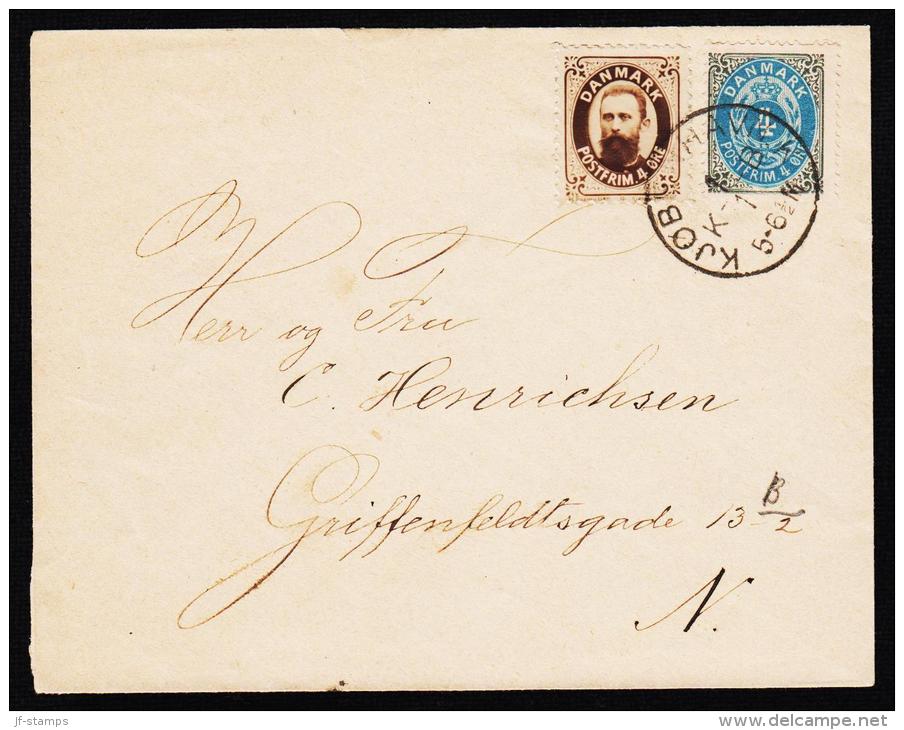 DANMARK
POSTFRIM. 4 ØRE
DANMARK
4
POSTFRIM. 4 ØRE
KJØB HAVN K
5-6 E
Herr og Fru
C. Henrichsen
Griffenfeldtsgade 13 B/2
N.
jf-stamps
www.delcampe.net